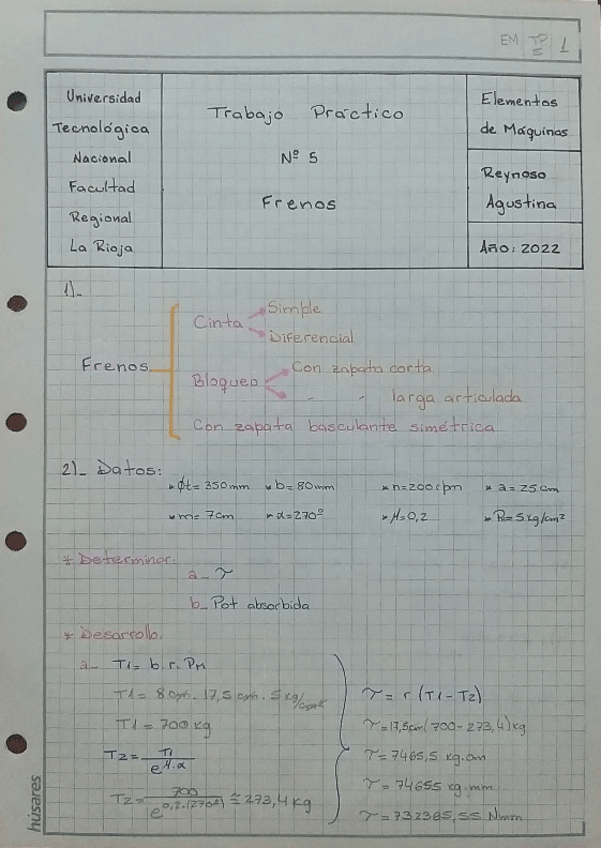 EM TP 5 1
Universidad
Tecnológica
Nacional
Facultad
Regional
La Rioja
Trabajo Práctico
Nº 5
Frenos
Elementos
de Máquinas
Reynoso
Agustina
Año: 2022
1)_
Frenos
Cinta
Simple
Diferencial
Bloqueo
Con zapata corta
" " larga articulada
Con zapata basculante simétrica
2)_ Datos:
* ϕt= 350mm * b= 80mm * n=200rpm * a= 25cm
* m= 7cm * α=270º * μ=0,2 * P=5kg/cm²
* Determinar:
a_ τ
b_ Pot absorbida
* Desarrollo:
a_ T1= b.r.PM
T1= 8cm.17,5cm.5kg/cm²
T1= 700kg
T2= T1/e^μ.α
T2= 700/e^0,2.(270º) ≅ 273,4kg
τ= r(T1-T2)
τ=17,5cm(700-273,4)kg
τ= 7465,5 kg.cm
τ= 74655 kg.mm
τ= 732365,55 Nmm
húsares